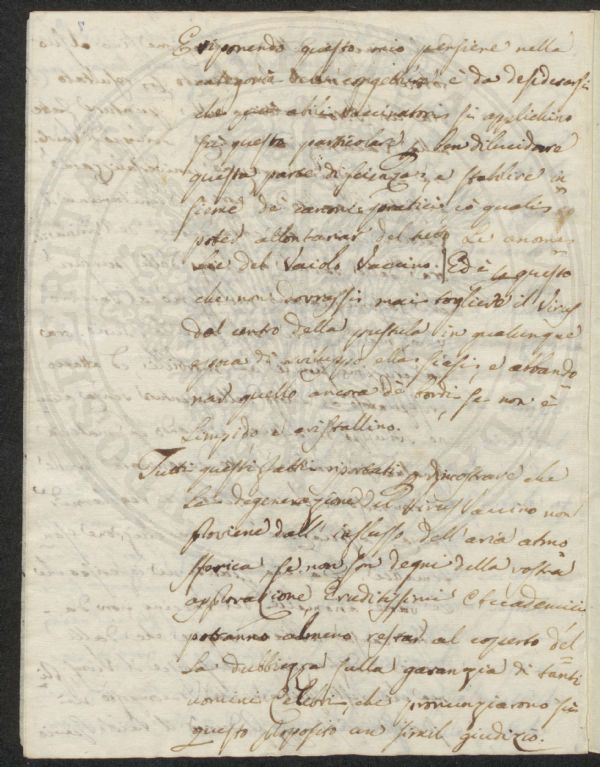 Esponendo questo mio pensiere nella
categoria de è da desiderarsi
che abili vaccinatori si applichino
su questo particolare, ben dilucidare
questa parte di scienza, e stabilire in=
sieme de' canoni pratici co' quali si
potes' allontanar del Le anoma=
lie del Vaiolo Vaccino. Ed è questo
che non dovressi mai togliere il Virus
dal centro della pustula in qualunque
epoca di sviluppo ella siasi, e abando=
nar quello ancora de' bordi, se non è
Limpido e cristallino.
Tutti questi fatti riportati a dimostrare che
La degenerazione del Virus Vaccino non
proviene dall' influsso dell' aria atmo=
sferica, se non son degni della vostra
approvazione Eruditissimi Accademici
potranno almeno restar al coperto del=
la dubbiezza sulla garanzia di tanti
uomini Celebri, che pronunziarono su
questo proposito un simil giudizio.